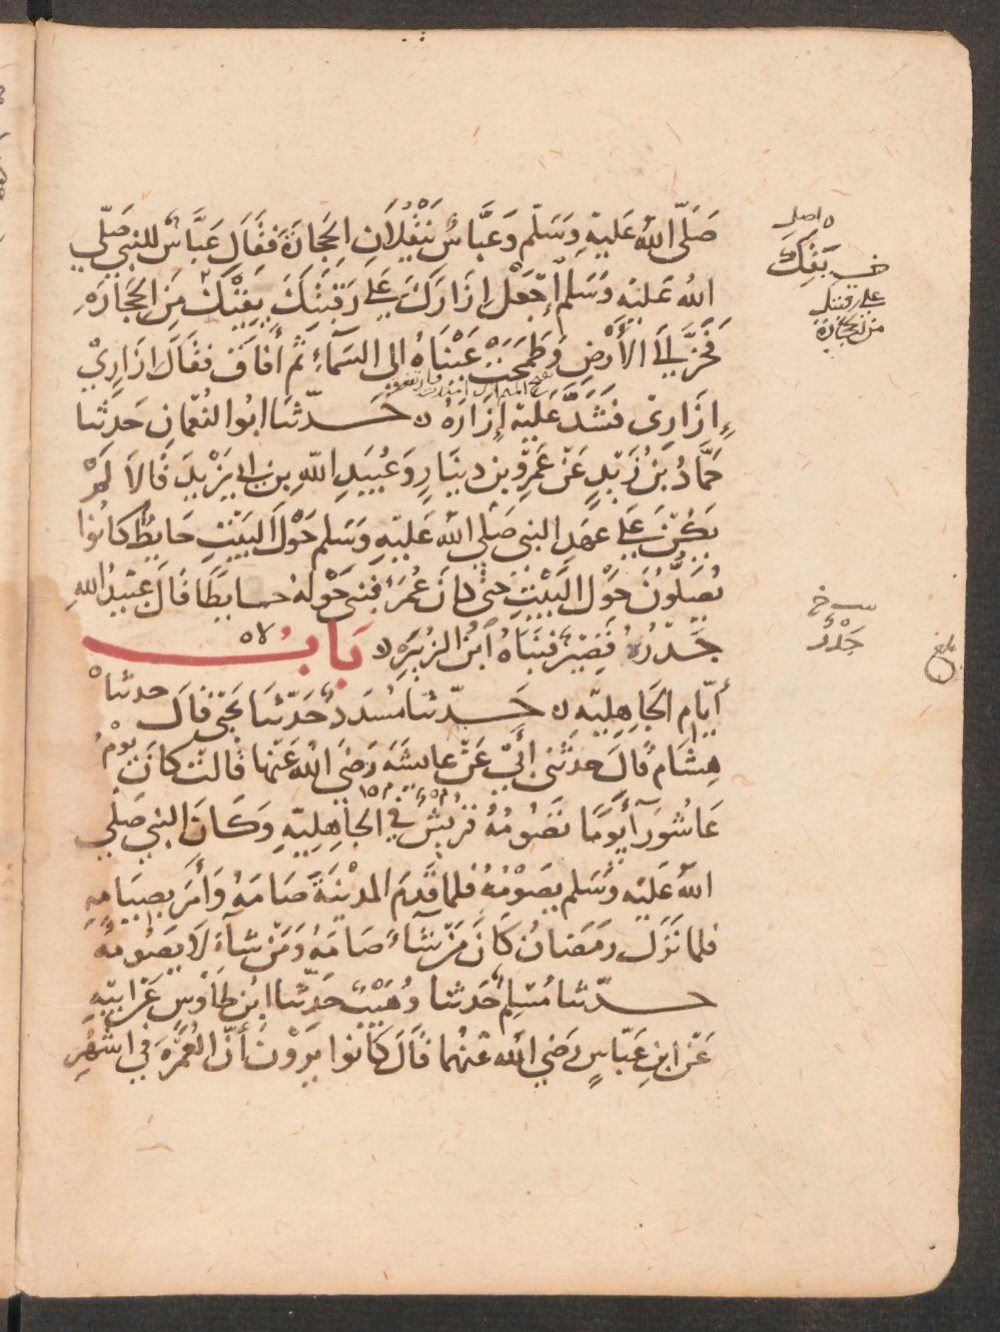 صَلَّى اللهُ عَلَيْهِ وَسَلَّم وَعَبَّاسٌ يَنْقُلَانِ الحِجَارَةَ فَقَالَ عَبَّاسٌ للنبي صَلّي
اللهُ عَلَيْهِ وَسَلم اجْعَلْ إِزَارَكَ عَلي رَقَبَتِكَ يَقِيْكَ مِنَ الحِجَارَةِ
فَخَرَّ إلَى الأَرْضِ وَطَمَحَتْ عَيْنَاهُ الى السَّمَآءِ ثُمَّ أَفَاقَ فَقَالَ ازَارِيْ
إِزَارِىْ فَشَدَّ عَلَيْهِ إِزَارَهُ حَدّثنَا ابُوا النُعْمَانِ حَدَثنا
حَمَّادُ بْنُ زَيْدٍ عَنْ عَمْرِو بن دينَارٍ وَعُبَيدِ اللهِ بن ابي يَزْيدَ قَالَا لَمْ
يَكُنْ عَلي عَهدِ النبى صَلي اللهُ عَلَيْهِ وَسَلم حَوْلَ البَيْتِ حَايِطٌ كانُوا
يُصَلُّونَ حَوْلَ البَيْتِ حَتي كانَ عُمَرُ فبَنى حَوْلَهُ حايطًا قَالَ عبَيْدُ اللهِ
جَدْرُهُ قَصِيْرٌ فبَنَاهُ ابنُ الزبَيْرِ بَابُ
أَيّامِ الجَاهِلِيّه حَدّثنا مُسَدَدٌ حَدّثنا يَحْيَى قالَ حدثنا
هِشَام قَالَ حَدَثَنى أَبِيْ عَنْ عايشَةَ رَضيَ اللهُ عَنْهَا قالتْ كانَ يَوْمُ
عَاشُورَآ يَوْمًا تَصُومُهُ قُرَيْشٌ في الجَاهِلِيّهِ وَكَانَ النبي صَلي
اللهُ عَلَيْه وَسَلم يَصَوْمُهُ فلما قَدِمَ المَدْينَةَ صَامَهُ وَأَمَرَ بِصِيَامِهِ
فلما نَزَلَ رَمَضَانُ كَانَ مَنْ شَآءَ صَامَهُ وَمَنْ شَآءَ لَا يَصُومُهُ
حدّثنا مُسْلِم حَدثنا وُهَيْبٌ حَدّثنا ابن طَاوُسٍ عَنْ ابيْهِ
عَنْ ابنِ عَبّاسٍ رَضي الله عَنْهُما قَالَ كَانُوا يَرَوْنَ أَنَّ العُمْرَةَ في اشْهُرِ
اصل
يَقِكَ
على رقبتك
من الحجارة
جَدْرُ
بلغ